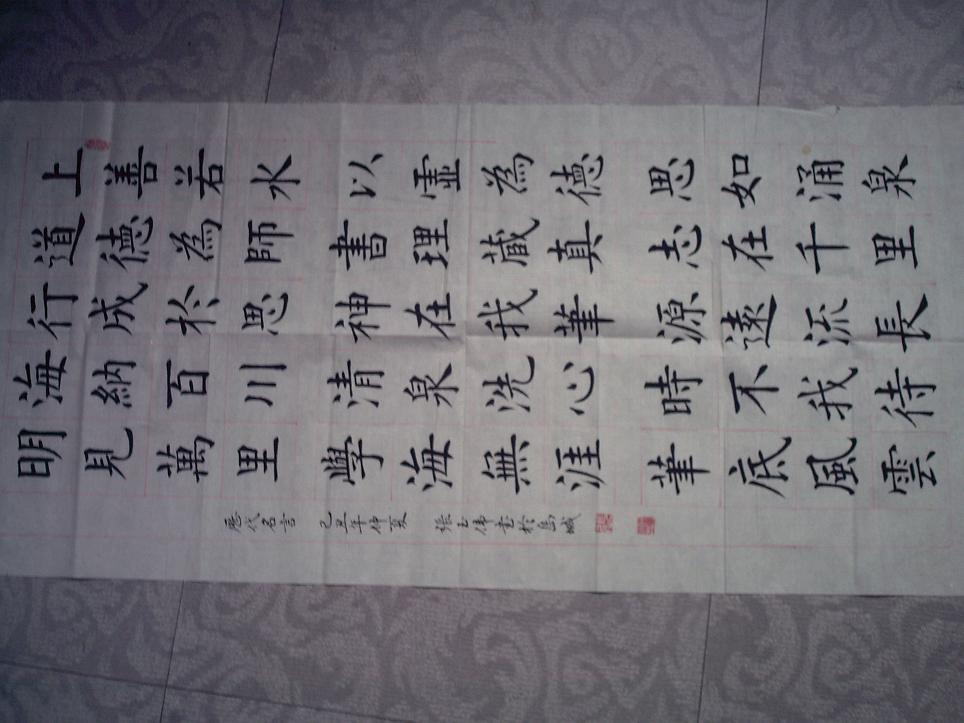 上善若水以虛為德思如涌泉
道德為師書理藏真志在千里
行成於思神在我筆源遠流長
海納百川清泉洗心時不我待
明見萬里學海無涯筆底風雲
歷代名言 己丑年仲夏 張玉偉書於島城